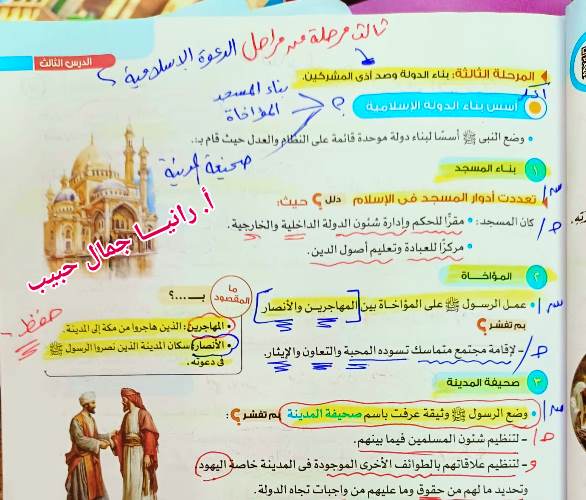 ثالث مرحلة من مراحل الدعوة الإسلامية
الدرس الثالث
المرحلة الثالثة: بناء الدولة وصد أذى المشركين.
أسس بناء الدولة الإسلامية ؟
بناء المسجد
المؤاخاة
صحيفة المدينة
• وضع النبي ﷺ أسسًا لبناء دولة موحدة قائمة على النظام والعدل حيث قام بـ:
١ بناء المسجد
تعددت أدوار المسجد في الإسلام دلل ؟ حيث:
كان المسجد: • مقرًا للحكم وإدارة شئون الدولة الداخلية والخارجية.
• مركزًا للعبادة وتعليم أصول الدين.
أ. رانيا جمال حبيب
٢ المؤاخاة
• عمل الرسول ﷺ على المؤاخاة بين المهاجرين والأنصار
بم تفسر ؟
- لإقامة مجتمع متماسك تسوده المحبة والتعاون والإيثار.
ما المقصود بـ ....؟
حفظ
• المهاجرين: الذين هاجروا من مكة إلى المدينة.
• الأنصار: سكان المدينة الذين نصروا الرسول ﷺ
في دعوته.
٣ صحيفة المدينة
• وضع الرسول ﷺ وثيقة عرفت باسم صحيفة المدينة بم تفسر ؟
- لتنظيم شئون المسلمين فيما بينهم.
- لتنظيم علاقاتهم بالطوائف الأخرى الموجودة في المدينة خاصة اليهود
وتحديد ما لهم من حقوق وما عليهم من واجبات تجاه الدولة.